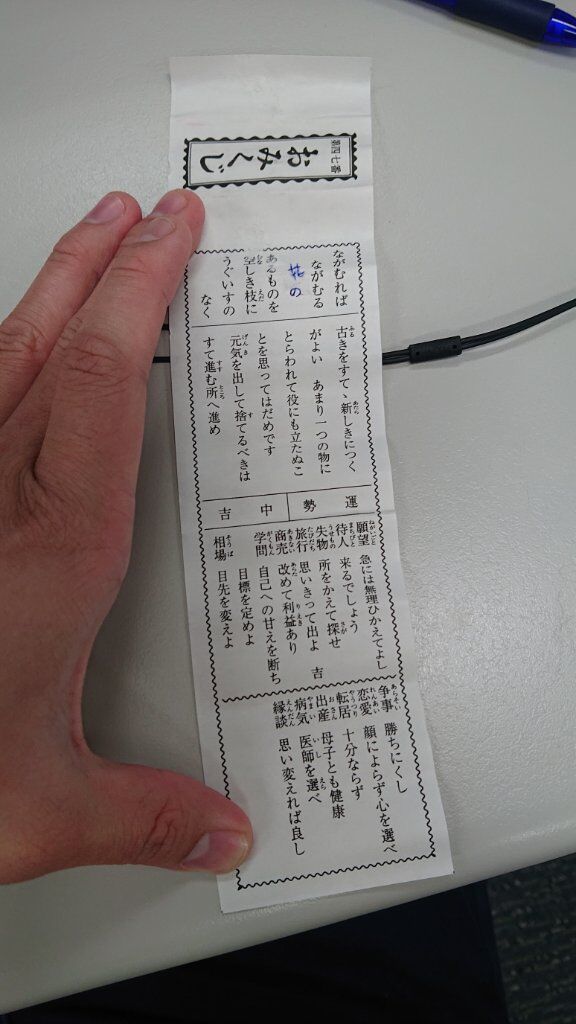 第四七番
おみくじ
ながむれば
ながむる
花の
あるものを
空しき枝に
うぐいすの
なく
古きをすてゝ新しきにつく
がよい　あまり一つの物に
とらわれて役にも立たぬこ
とを思ってはだめです
元気を出して捨てるべきは
すて進む所へ進め
運勢　中吉
願望　急には無理ひかえてよし
待人　来るでしょう
失物　所をかえて探せ
旅行　思いきって出よ　吉
商売　改めて利益あり
学問　自己への甘えを断ち
目標を定めよ
相場　目先を変えよ
争事　勝ちにくし
恋愛　顔によらず心を選べ
転居　十分ならず
出産　母子とも健康
病気　医師を選べ
縁談　思い変えれば良し